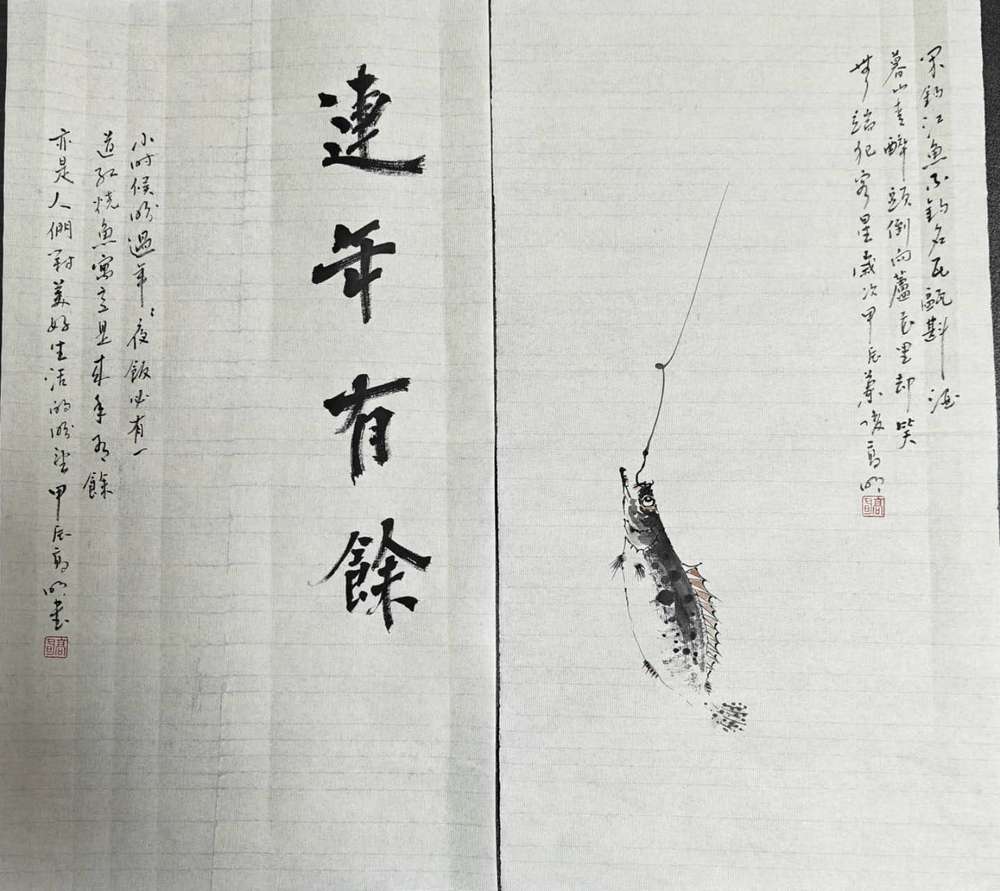 閑釣江魚不釣名瓦甌斟酒
暮山青醉頭倒向蘆花里却笑
無端犯客星歲次甲辰高明
連年有餘
小时候盼過年〻夜飯必有一
道紅燒魚寓意是來年有餘
亦是人們對美好生活的盼望甲辰高明書